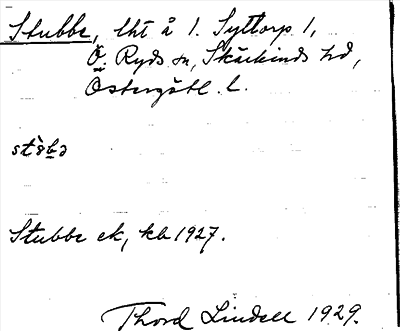 Stubbe, lht å l. Syttorp 1,
Ö. Ryds sn, Skärkinds hd,
Östergötl. l.
stùbə
Stubbe ek, kb 1927.
Thord Lindell 1929.